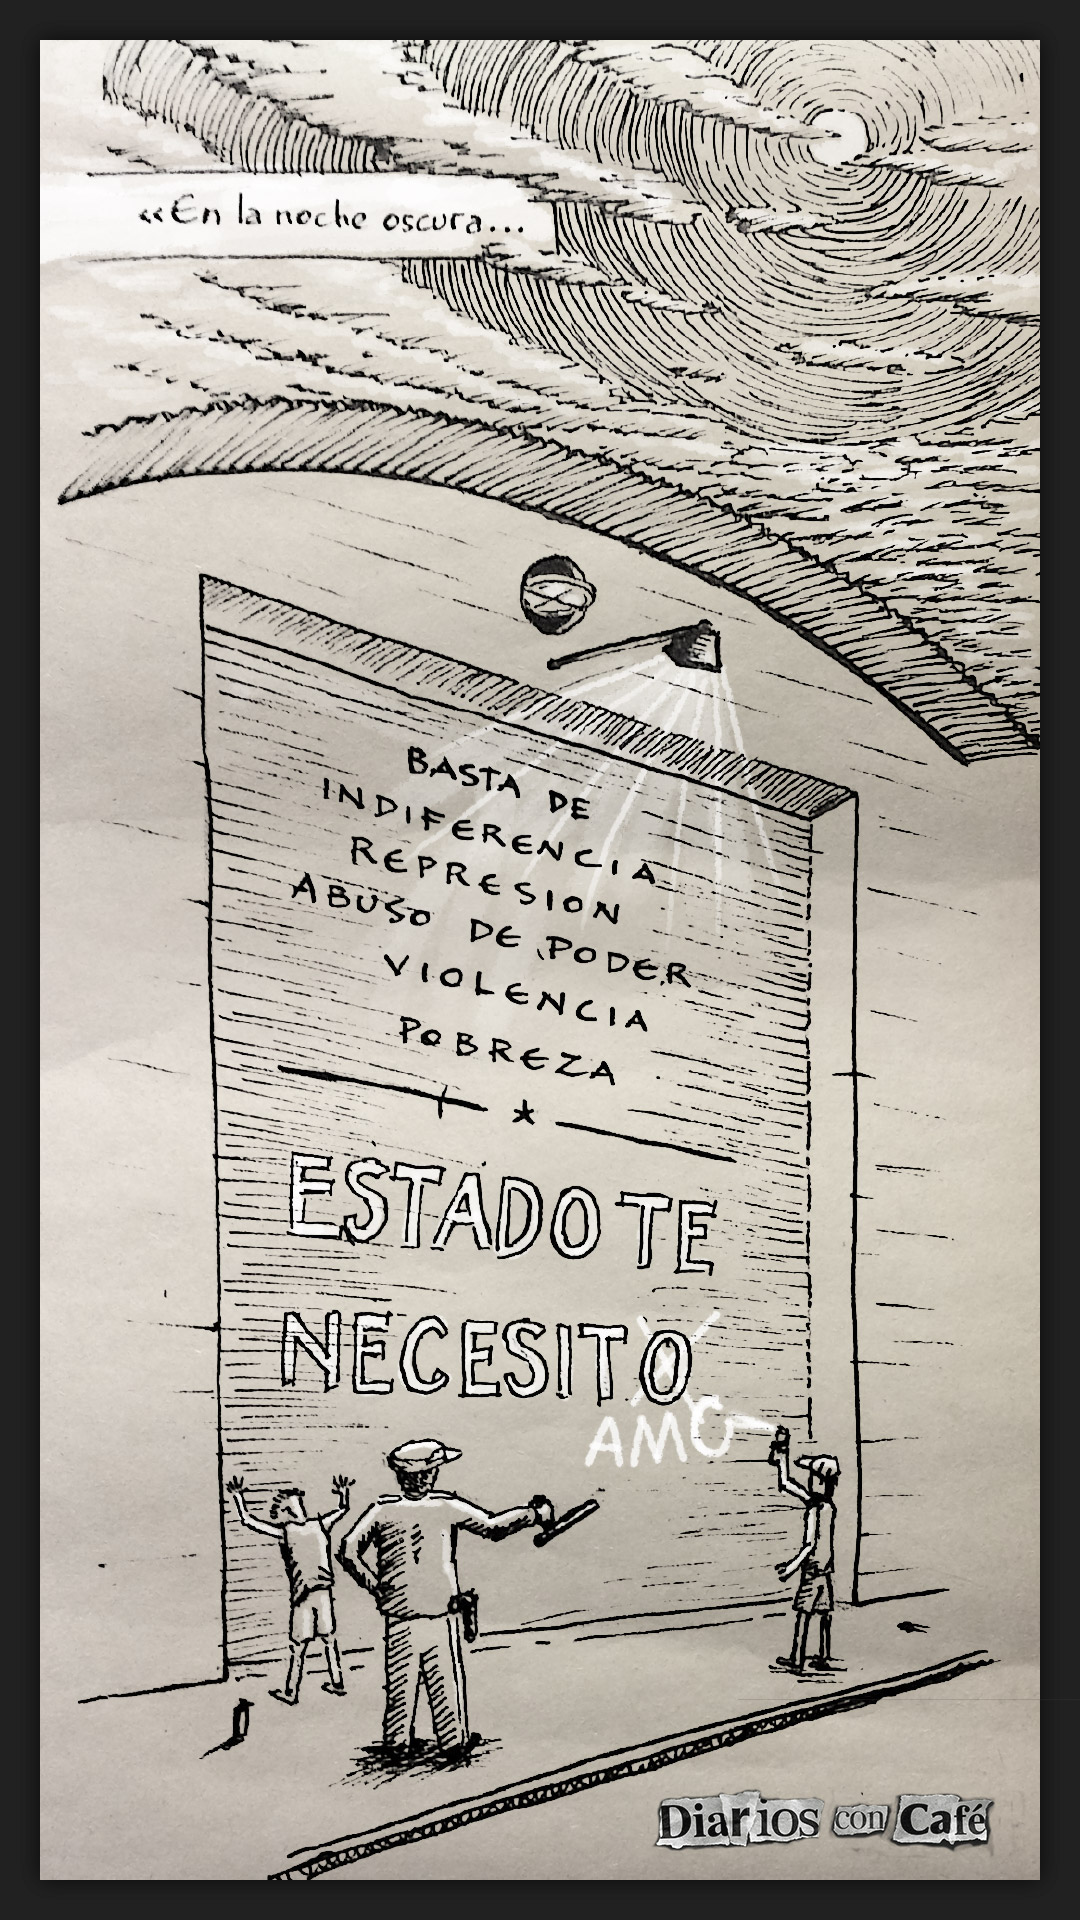 «En la noche oscura...
BASTA DE
INDIFERENCIA
REPRESION
ABUSO DE PODER
VIOLENCIA
POBREZA
ESTADO TE
NECESITO
AMO
Diarios con Café